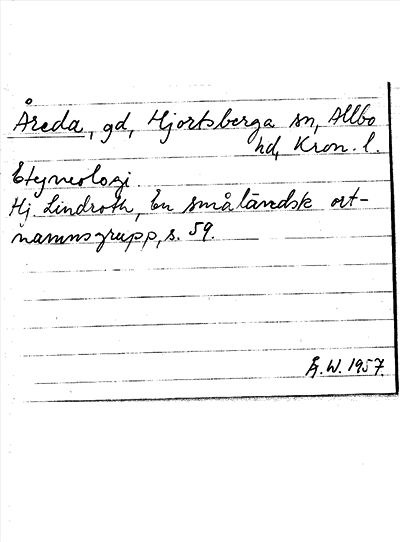 Åreda, gd, Hjortsberga sn, Allbo
hd, Kron. l.
Etymologi.
Hj Lindroth, En småländsk ort-
namnsgrupp, s. 59.
Å. W. 1957.